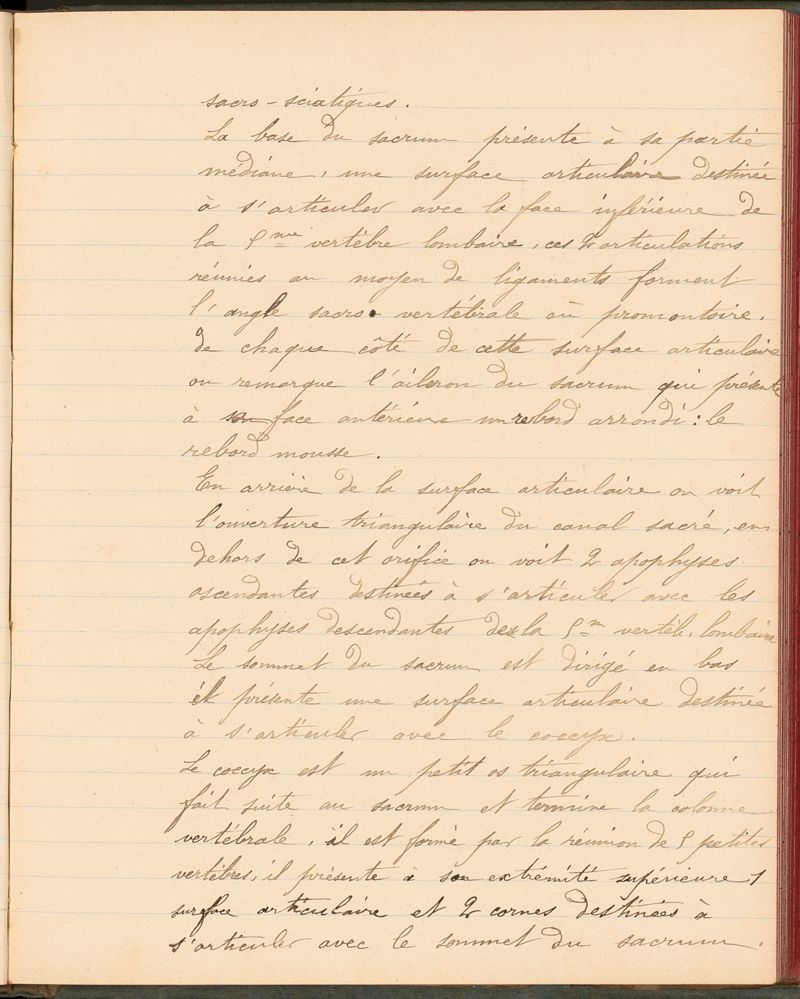 sacro-sciatiques.
La base du sacrum présente à sa partie
médiane, une surface articulaire destinée
à s'articuler avec la face inférieure de
la 5me vertèbre lombaire, ces 2 articulations
réunies au moyen de ligaments forment
l'angle sacro vertébrale ou promontoire.
de chaque côté de cette surface articulaire
on remarque l'aileron du sacrum qui présente
à son face antérieure un rebord arrondi : le
rebord mousse.
En arrière de la surface articulaire on voit
l'ouverture triangulaire du canal sacré, en
dehors de cet orifice on voit 2 apophyses
ascendantes destinées à s'articuler avec les
apophyses descendantes de la 5m vertèb. lombaire
Le sommet du sacrum est dirigé en bas
il présente une surface articulaire destinée
à s'articuler avec le coccyx.
Le coccyx est un petit os triangulaire qui
fait suite au sacrum et termine la colonne
vertébrale, il est formé par la réunion de 5 petites
vertèbres, il présente à son extrémité supérieure 1
surface articulaire et 2 cornes destinées à
s'articuler avec le sommet du sacrum.